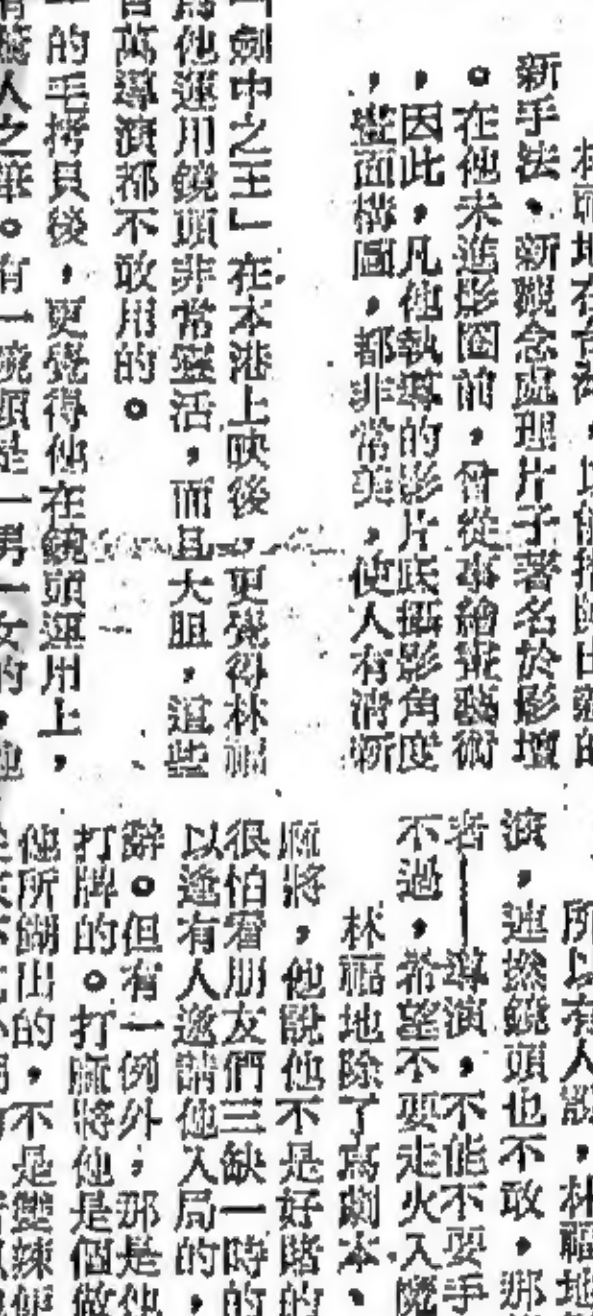 新手法、新觀念處理片子著名於影壇
。在他未進影圈前，曾從事繪畫藝術
，因此，凡他執導的影片底攝影角度
，畫面構圖，都非常美，使人有淸新
劍中之王」在本港上映後，更覺得林福
他運用鏡頭非常靈活，而且大胆，這些
導演都不敢用的。
的毛拷貝後，更覺得他在鏡頭運用上，
人之筆。有一鏡頭是一男一女的，他
所以有人說，林福地
演，連撚鏡頭也不敢，那
者——導演，不能不要手
不過，希望不要走火入魔
林福地除了寫劇本、
麻將，他說他不是好賭的
很怕看朋友們三缺一時的
以逢有人邀請他入局的，
辭。但有一例外，那是他
打牌的。打麻將他是個做
他所餬出的，不是雙辣便